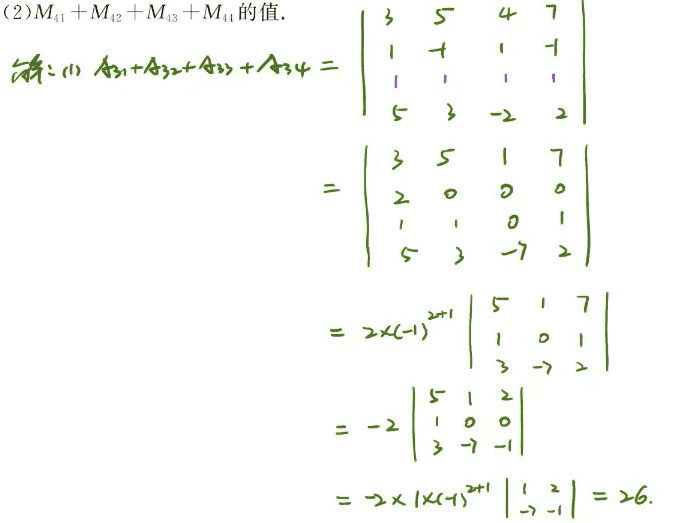 (2)M₄₁+M₄₂+M₄₃+M₄₄的值.
解:(1) A₃₁+A₃₂+A₃₃+A₃₄ =
| 3 5 4 7 |
| 1 -1 1 -1 |
| 1 1 1 1 |
| 5 3 -2 2 |
=
| 3 5 1 7 |
| 2 0 0 0 |
| 1 1 0 1 |
| 5 3 -7 2 |
= 2×(-1)²⁺¹
| 5 1 7 |
| 1 0 1 |
| 3 -7 2 |
= -2
| 5 1 2 |
| 1 0 0 |
| 3 -7 -1 |
= -2×1×(-1)²⁺¹
| 1 2 |
| -7 -1 |
= 26.